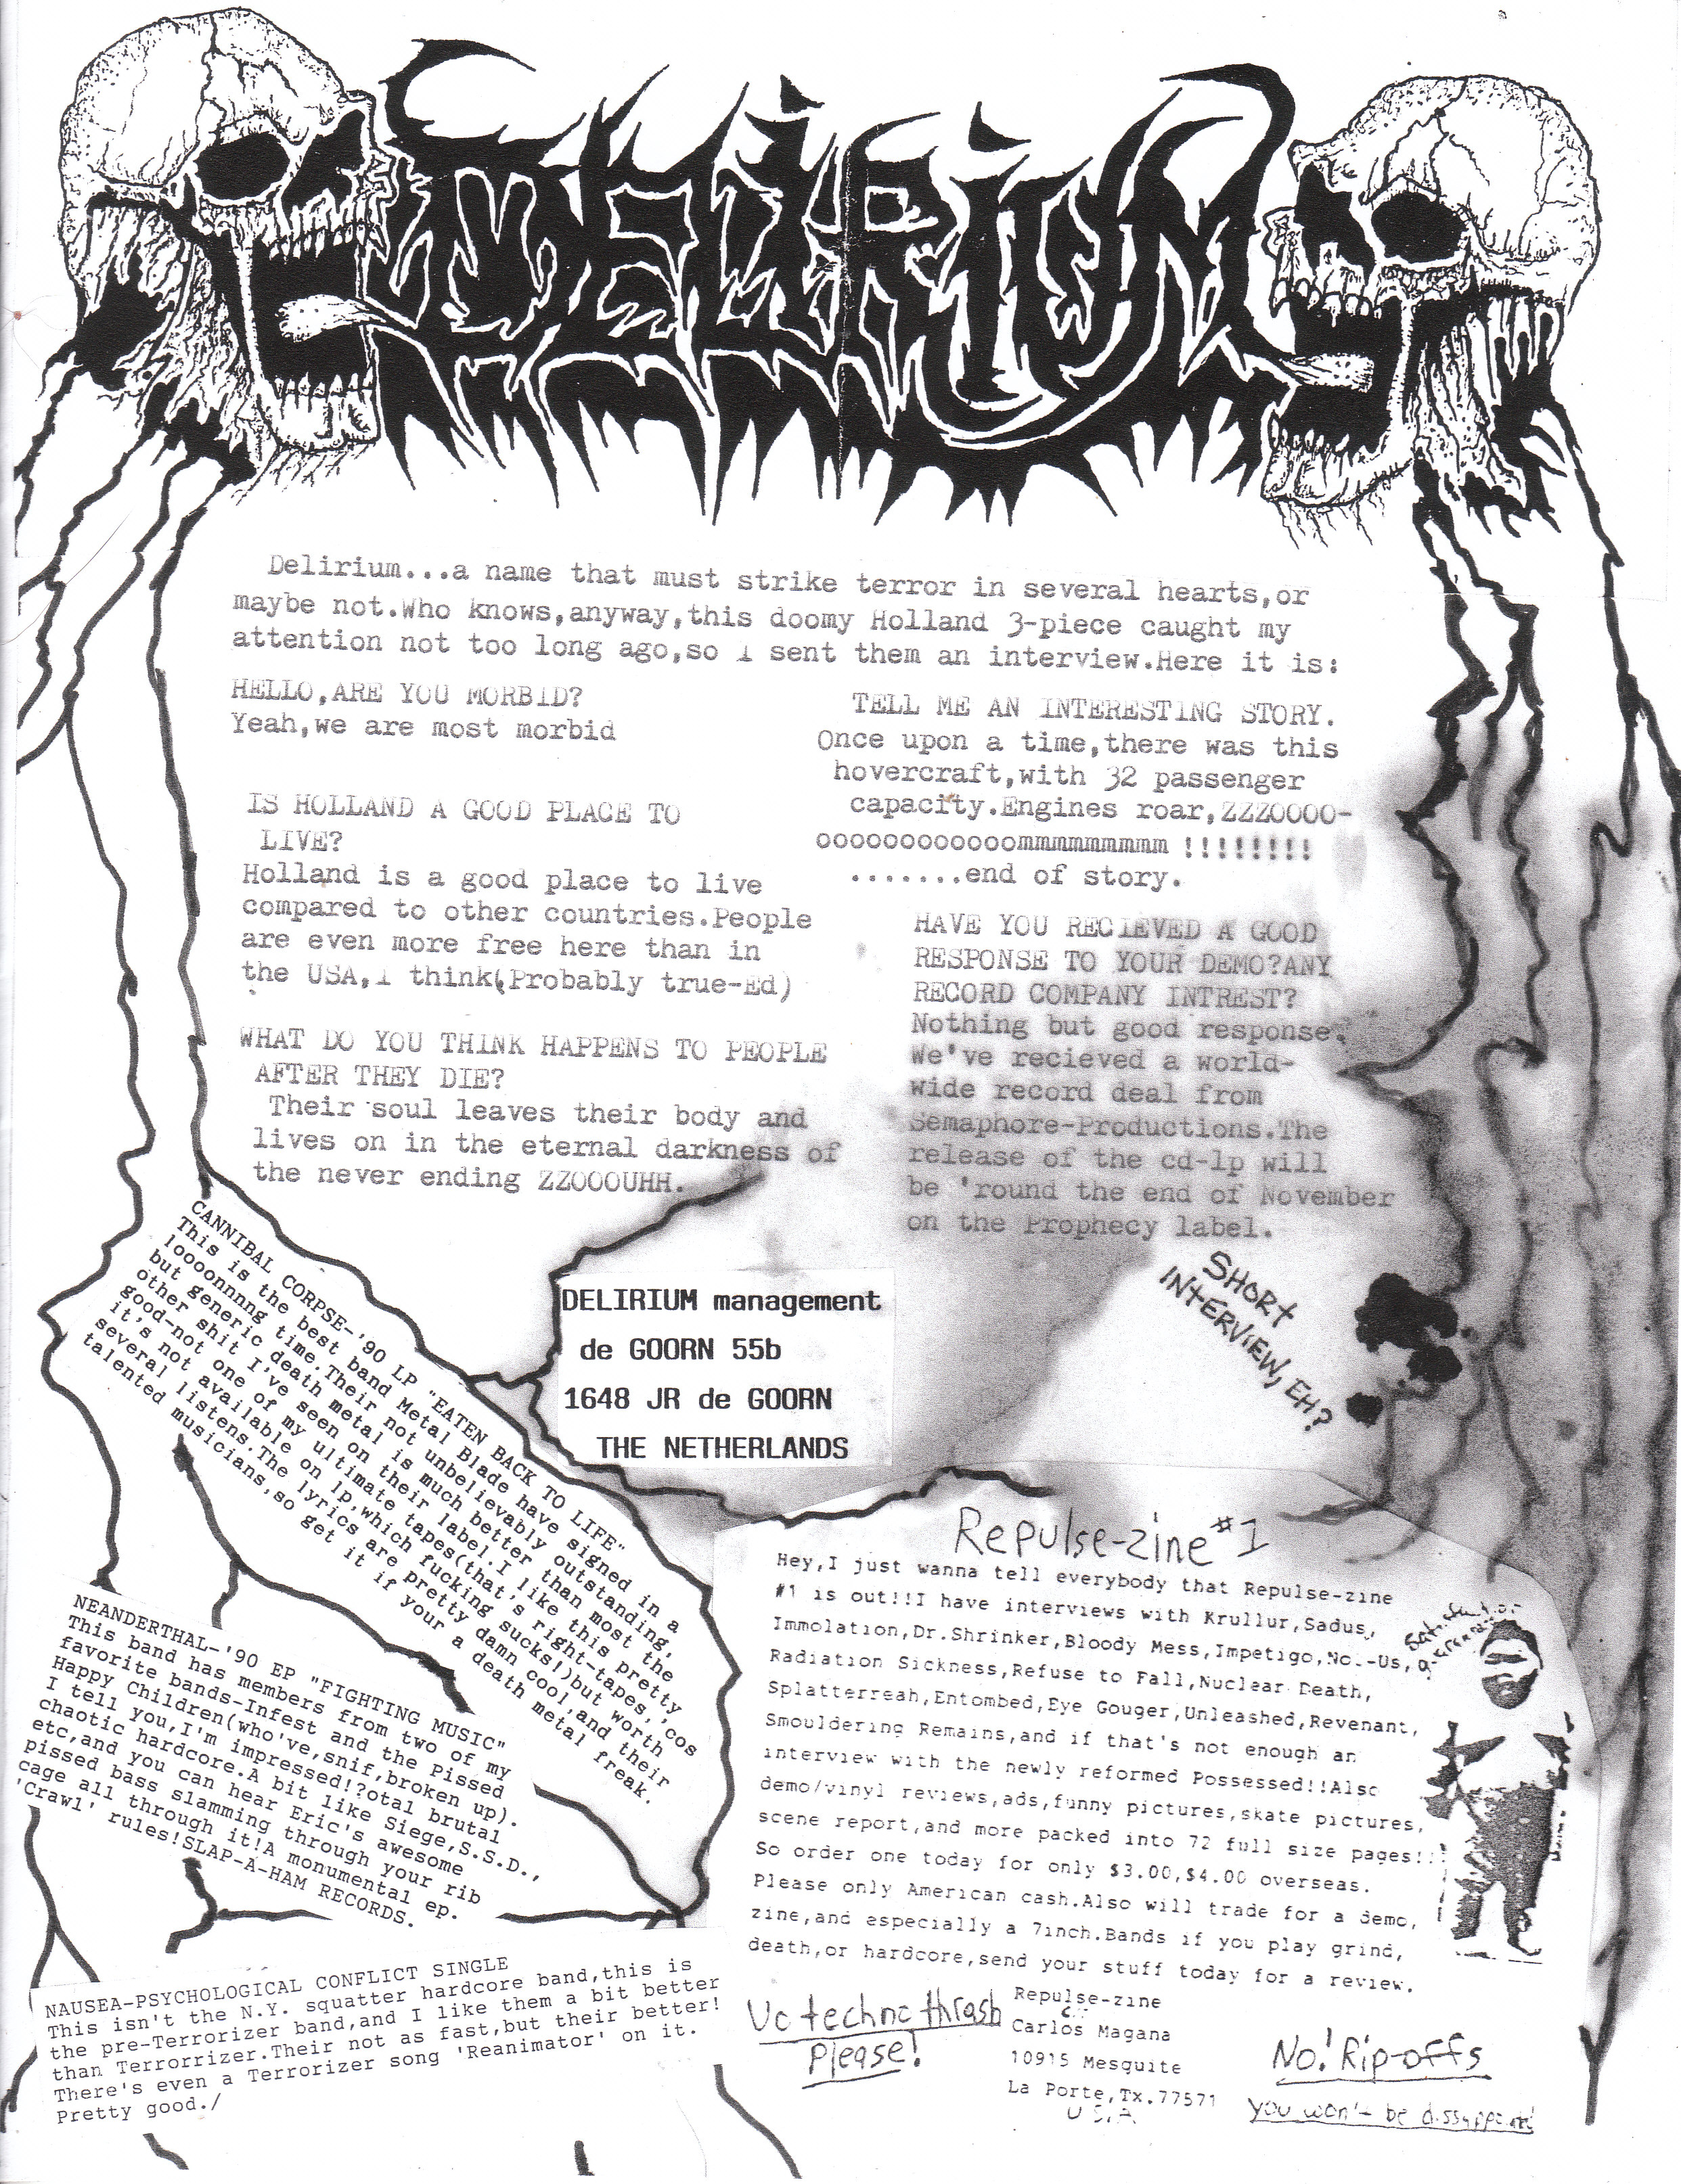 DELIRIUM
Delirium...a name that must strike terror in several hearts,or
maybe not.Who knows,anyway,this doomy Holland 3-piece caught my
attention not too long ago,so I sent them an interview.Here it is:
HELLO,ARE YOU MORBID?
Yeah,we are most morbid
IS HOLLAND A GOOD PLACE TO
LIVE?
Holland is a good place to live
compared to other countries.People
are even more free here than in
the USA,I think(Probably true-Ed)
WHAT DO YOU THINK HAPPENS TO PEOPLE
AFTER THEY DIE?
Their soul leaves their body and
lives on in the eternal darkness of
the never ending ZZOOOUHH.
TELL ME AN INTERESTING STORY.
Once upon a time,there was this
hovercraft,with 32 passenger
capacity.Engines roar,ZZZOOOO-
oooooooooooommmmmmmmm !!!!!!!!
.......end of story.
HAVE YOU RECIEVED A GOOD
RESPONSE TO YOUR DEMO?ANY
RECORD COMPANY INTREST?
Nothing but good response.
We've recieved a world-
wide record deal from
Semaphore-Productions.The
release of the cd-lp will
be 'round the end of November
on the Prophecy label.
SHORT
INTERVIEW, EH?
DELIRIUM management
de GOORN 55b
1648 JR de GOORN
THE NETHERLANDS
CANNIBAL CORPSE-'90 LP "EATEN BACK TO LIFE"
This is the best band Metal Blade have signed in a
loooonnnng time.Their not unbelievably outstanding,
but generic death metal is much better than most the
other shit I've seen on their label.I like this pretty
good-not one of my ultimate tapes(that's right-tapes,'cos
it's not available on lp,which fucking sucks!)but worth
several listens.The lyrics are pretty damn cool,and their
talented musicians,so get it if your a death metal freak.
NEANDERTHAL-'90 EP "FIGHTING MUSIC"
This band has members from two of my
favorite bands-Infest and the Pissed
Happy Children(who've,snif,broken up).
I tell you,I'm impressed!?otal brutal
chaotic hardcore.A bit like Siege,S.S.D.,
etc,and you can hear Eric's awesome
pissed bass slamming through your rib
cage all through it!A monumental ep.
'Crawl' rules!SLAP-A-HAM RECORDS.
NAUSEA-PSYCHOLOGICAL CONFLICT SINGLE
This isn't the N.Y. squatter hardcore band,this is
the pre-Terrorizer band,and I like them a bit better
than Terrorrizer.Their not as fast,but their better!
There's even a Terrorizer song 'Reanimator' on it.
Pretty good./
Repulse-zine #1
Hey,I just wanna tell everybody that Repulse-zine
#1 is out!!I have interviews with Krullur,Sadus,
Immolation,Dr.Shrinker,Bloody Mess,Impetigo,No.-Us,
Radiation Sickness,Refuse to Fall,Nuclear Death,
Splatterreah,Entombed,Eye Gouger,Unleashed,Revenant,
Smouldering Remains,and if that's not enough an
interview with the newly reformed Possessed!!Also
demo/vinyl reviews,ads,funny pictures,skate pictures,
scene report,and more packed into 72 full size pages!!
So order one today for only $3.00,$4.00 overseas.
Please only American cash.Also will trade for a demo,
zine,and especially a 7inch.Bands if you play grind,
death,or hardcore,send your stuff today for a review.
Repulse-zine
c/o
Carlos Magana
10915 Mesquite
La Porte,Tx.77571
U.S.A.
techno thrash
Please!
No! Rip-offs
You won't be